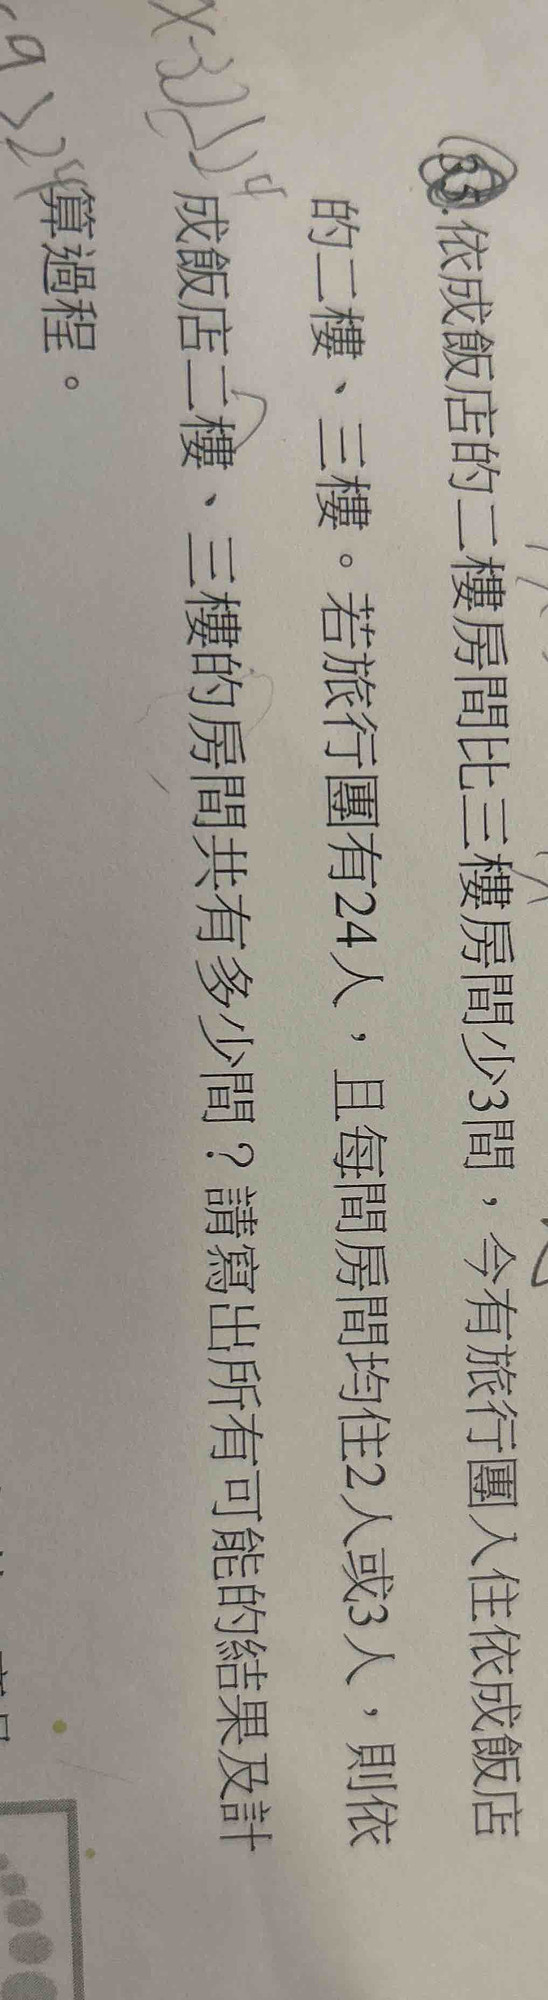 35.依成飯店的二樓房間比三樓房間少3間，今有旅行團入住依成飯店
的二樓、三樓。若旅行團有24人，且每間房間均住2人或3人，則依
成飯店二樓、三樓的房間共有多少間？請寫出所有可能的結果及計
算過程。